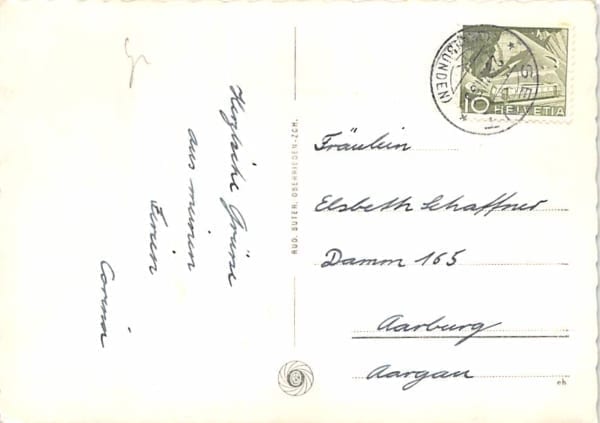 Herzliche Grüsse
aus meinen
Ferien
Corina
RUD. SUTER, OBERRIEDEN-ZCH.
10 HELVETIA
Fräulein
Elsbeth Schaffner
Damm 165
Aarburg
Aargau
eh